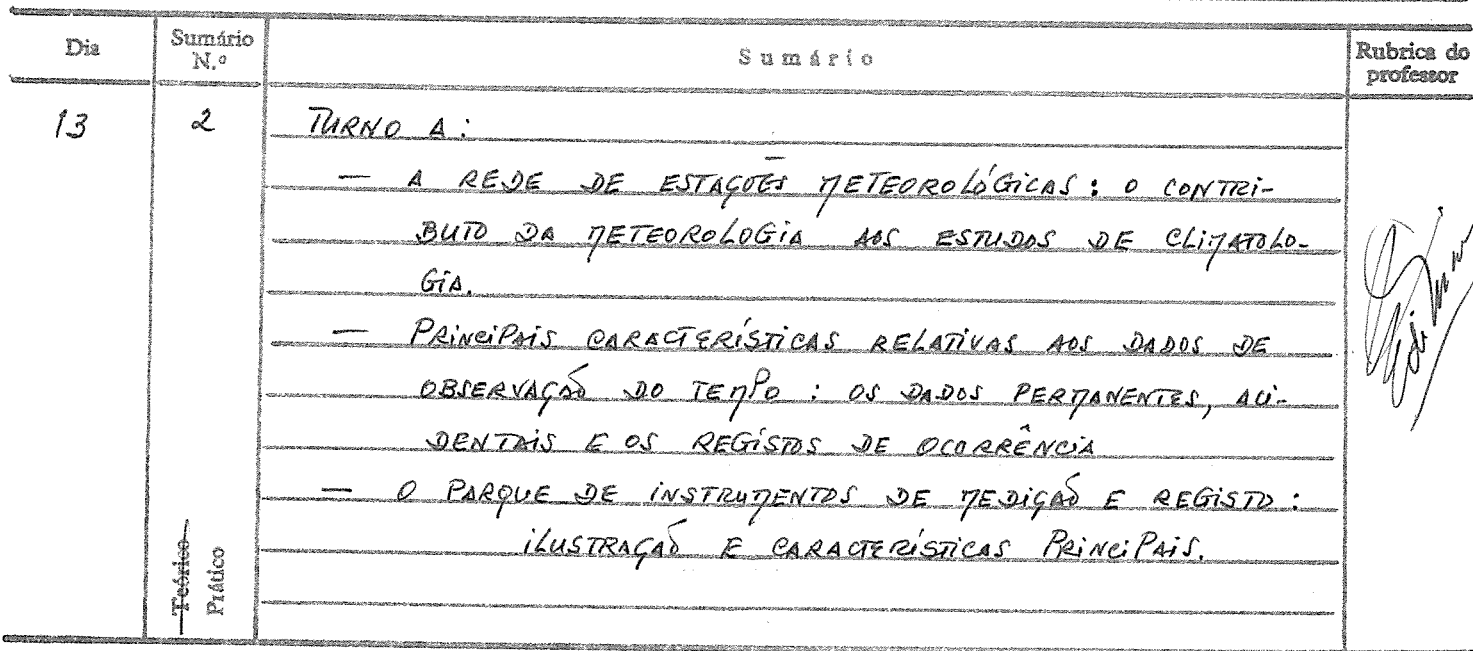 Dia Sumário N.º Sumário Rubrica do professor
13 2 TURNO A:
— A REDE DE ESTAÇÕES METEOROLÓGICAS: O CONTRI-
BUTO DA METEOROLOGIA AOS ESTUDOS DE CLIMATOLO-
GIA.
— PRINCIPAIS CARACTERÍSTICAS RELATIVAS AOS DADOS DE
OBSERVAÇÃO DO TEMPO: OS DADOS PERMANENTES, ACI-
DENTAIS E OS REGISTOS DE OCORRÊNCIA
— O PARQUE DE INSTRUMENTOS DE MEDIÇÃO E REGISTO:
ILUSTRAÇÃO E CARACTERÍSTICAS PRINCIPAIS.
Teórico
Prático